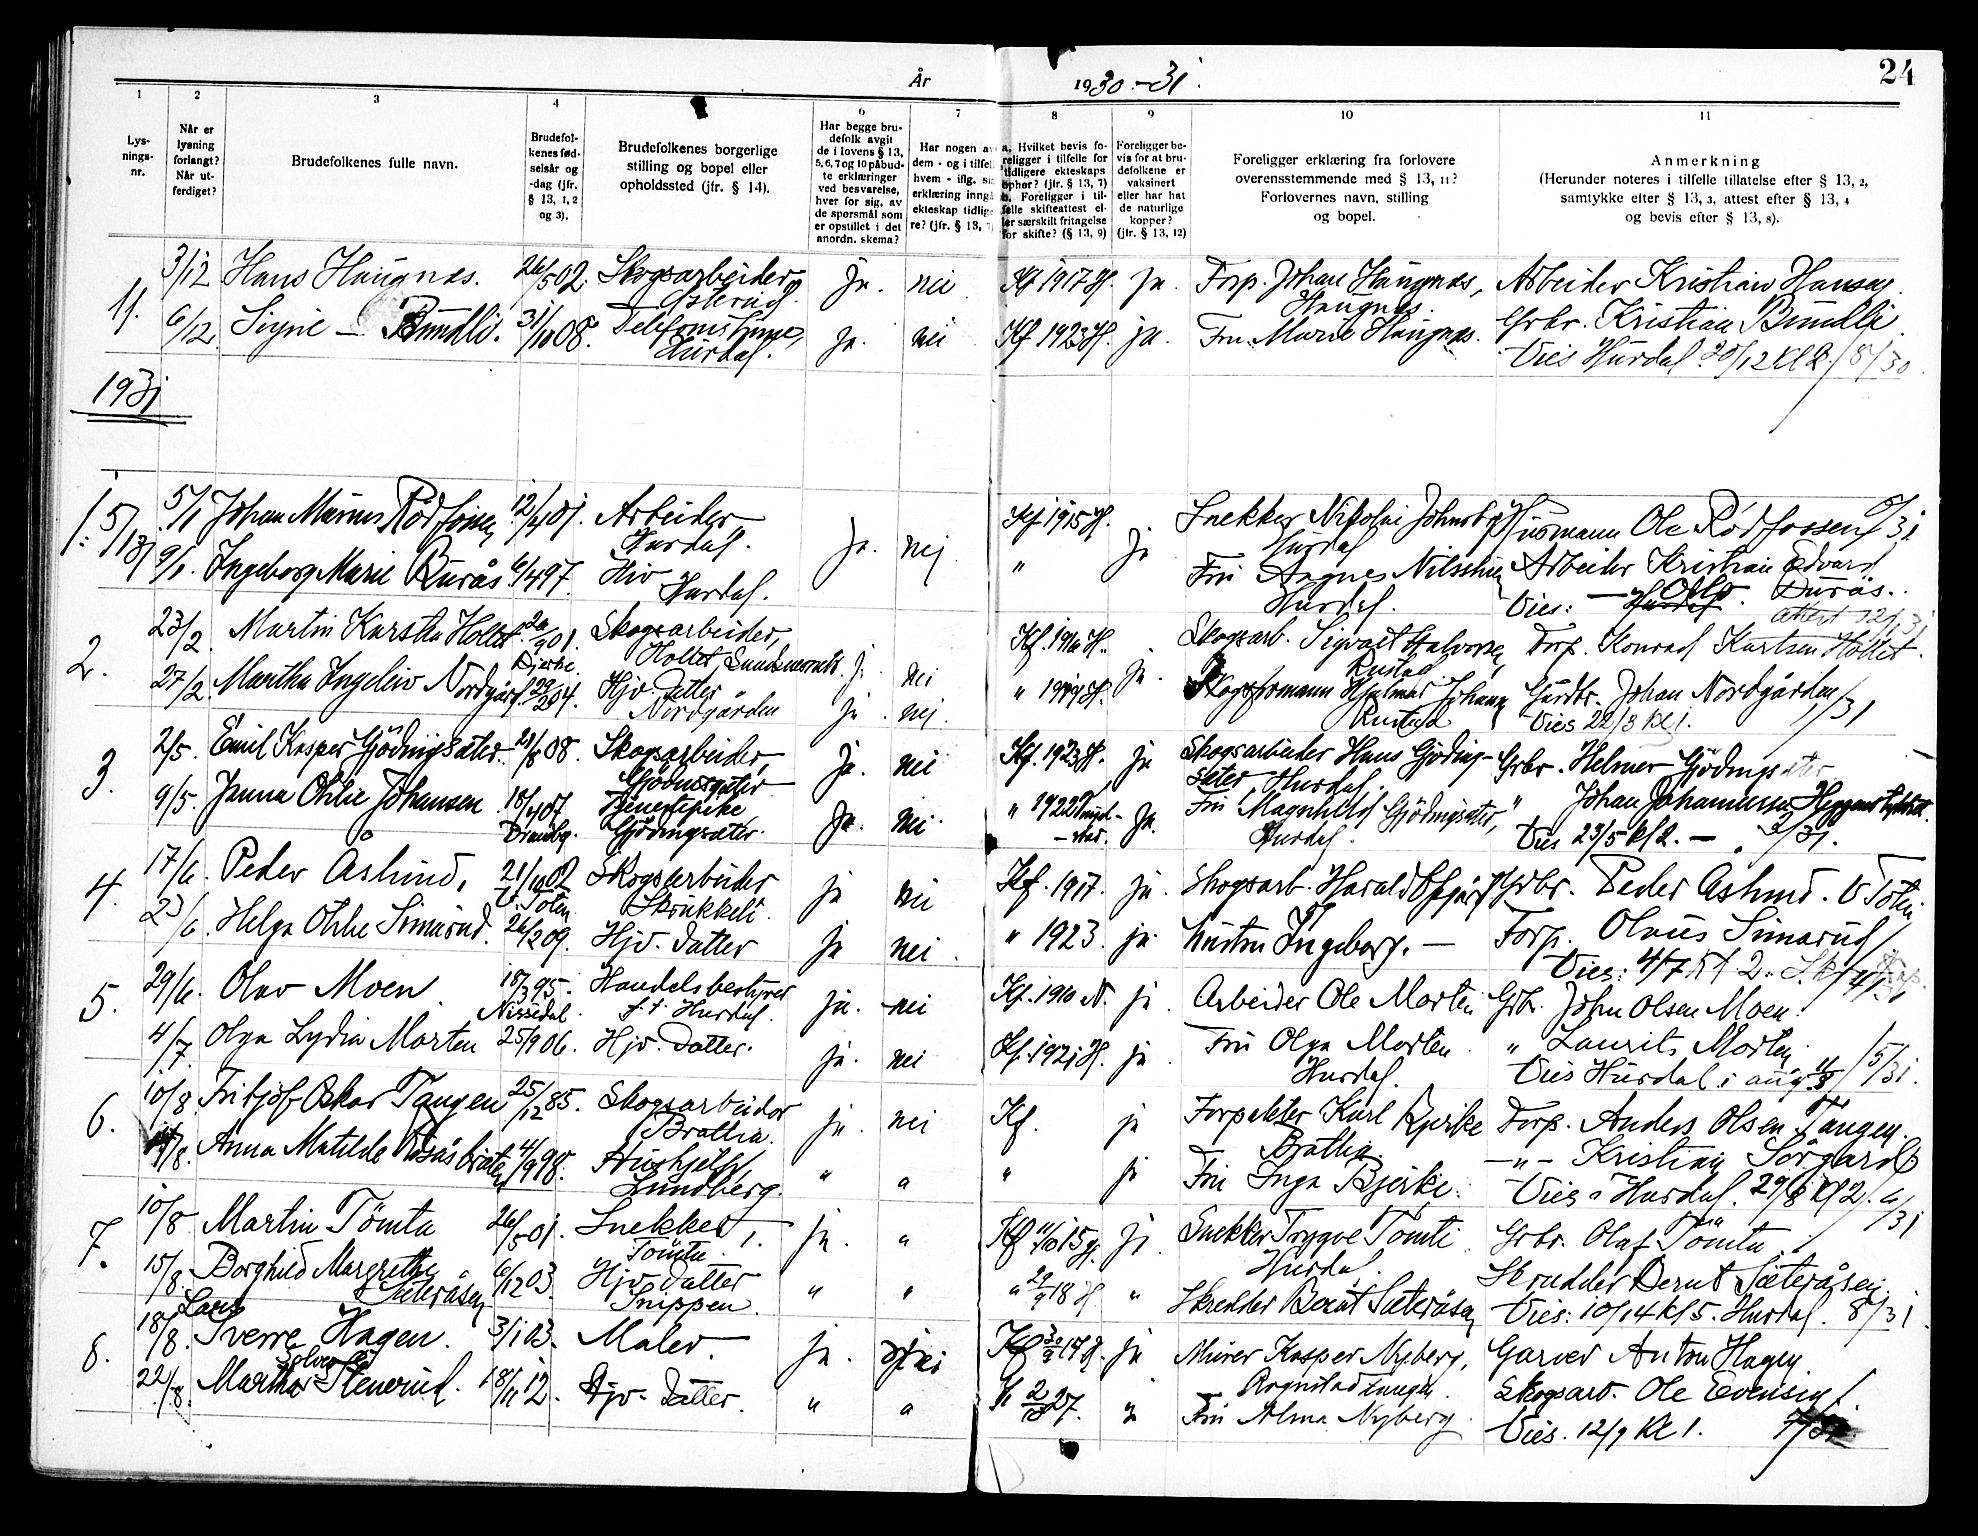 24
År 1930-31.
1 2 3 4 5 6 7 8 9 10 11
Lysningsnr.
Når er lysning forlangt? Når utferdiget?
Brudefolkenes fulle navn.
Brudefolkenes fødselsår og -dag (jfr. § 13, 1, 2 og 3).
Brudefolkenes borgerlige stilling og bopel eller opholdssted (jfr. § 14).
Har begge brudefolk avgit de i lovens § 13, 5, 6, 7 og 10 påbudte erklæringer ved besvarelse, hver for sig, av de spørsmål som er opstillet i det anordn. skema?
Har nogen av dem - og i tilfelle hvem - iflg. sin erklæring inngått ekteskap tidligere? (jfr. § 13, 7)
a. Hvilket bevis foreligger i tilfelle for tidligere ekteskaps ophør? (jfr. § 13, 7) b. Foreligger i tilfelle skifteattest eller særskilt fritagelse for skifte? (§ 13, 9)
Foreligger bevis for at brudefolkene er vaksinert eller har hat de naturlige kopper? (jfr. § 13, 12)
Foreligger erklæring fra forlovere overensstemmende med § 13, 11? Forlovernes navn, stilling og bopel.
Anmerkning (Herunder noteres i tilfelle tillatelse efter § 13, 2, samtykke efter § 13, 3, attest efter § 13, 4 og bevis efter § 13, 8).
11. 3/12 Hans Haugnes. 26/5 02. Skogsarbeider ja. nei Kf 1917 H. ja. Forp. Johan Haugnes, Haugnes. Arbeider Kristian Hansen
6/12 Signe Bundli. 31/10 08. Hurdal. ja. nei Kf 1923 H. ja. Fru Marie Haugnes. Grbr. Kristian Bundli
Vies Hurdal 20/12 Kl 2. 8/30
1931
1. 5/1 31 5/1 Johan Marius Rødfossen 12/4 01. Arbeider Hurdal. ja. nei Kf 1915 H. ja Snekker Nikolai Hurdal Husmann Ole Rødfossen 1/31
9/1. Ingeborg Marie Burås 6/4 97. Hurdal. " Fru Hurdal. Arbeider Kristian Edvard Burås.
Vies: Oslo. attest 12/1 31
2. 23/2. Martin Karsten Holtet. 901. Skogsarbeider, Holtet, ja nei Kf. 1916 H. ja. Skogsarb. Sigvart Halvorsen Rustad Forp. Konrad Karlsen Holtet.
27/2. Martha Ingeliv Nordgård. Hjv. Datter Nordgården ja. nei. " 1919 H. Hjalmar Johansen Rustad Gårdbr. Johan Nordgården
Vies 22/3 Kl 1. 1/31
3. 2/5. Emil Kasper Gjødingsæter. 21/8 08. Skogsarbeider, ja. nei Kf. 1923 H. ja Skogsarbeider Hans Gjødingsæter Hurdal. Grbr. Helmer Gjødingsæter
9/5. Janna Othlie Johansen 18/4 07 Gjødingsæter. ja. nei " 1922 ja. Fru Magnhild Gjødingsæter, Hurdal. " Johan Johannessen
Vies 23/5 kl 2. 3/31.
4. 17/6. Peder Åslund. 21/10 02 V. Toten Skogsarbeider Skrukkeli. ja nei Kf. 1917. ja. Skogsarb. Harald Grbr. Peder Aslund. V Toten
23/6. Helga Othlie Simarud. 26/2 09. Hjv. Datter ja nei. " 1923. ja. Ingeborg. Forp. Olaus Simarud
Vies: 4/7 Kl 2. 4/31
5. 29/6. Olav Moen. 18/3 95. Nissedal Handelsbestyrer f.t. Hurdal. ja. nei Kf. 1910 N. ja. Arbeider Ole Morten Grbr. John Olsen Moen.
4/7. Olga Lydia Morten 25/9 06. Hjv. Datter. ja. nei Kf. 1921 H. ja Fru Olga Morten Hurdal. " Laurits Morten
Vies Hurdal i aug. 5/31.
6. 10/8. Fritjof Oskar Tangen 25/12 85. Skogsarbeider Brattlia. ja. nei Kf. ja Forpakter Karl Bjerke Brattlia. Forp. Anders Olsen Tangen.
/8. Anna Matilde 4/9 98. Lundberg. " " " ja Fru Inga Bjerke. -"- Kristian Sørgard
Vies i Hurdal. 29/8 Kl 2. 6/31
7. 10/8 Martin Tömta 26/5 01. Snekker, Tömta. ja. " Kf 15 H. ja Snekker Trygve Tömte Hurdal. Grbr. Olaf Tömta.
15/8. Borghild Margrethe Sæteråsen 6/12 03. Hjv. Datter Snippen. " " " 18 H. " Skredder Bernt Sæteråsen Skredder Bernt Sæteråsen.
Vies: 10/10 14 kl 5. Hurdal. 8/31
8. 18/8. Lars Sverre Hagen. 3/1 03. Maler. ja. nei Kf 17 H. ja Murer Kasper Nyberg, Garver Anton Hagen
22/8. Martha Solveig Stenerud. 18/11 12. Hjv. Datter. " " 27. " Fru Alma Nyberg Skogsarb. Ole Evensen
Vies. 12/9 Kl 1.